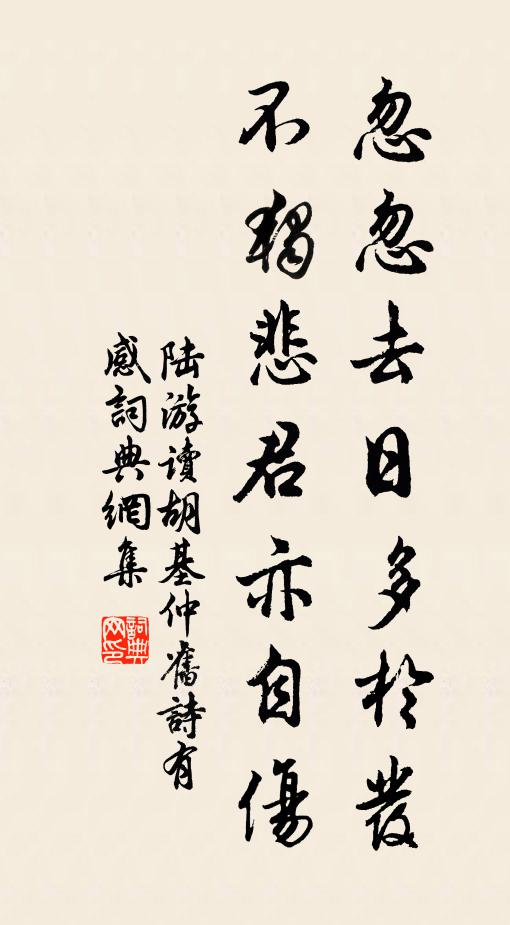 忽忽去日多於發
不獨悲君亦自傷
陸游讀胡基仲舊詩有
感詞典網集
詞典网印